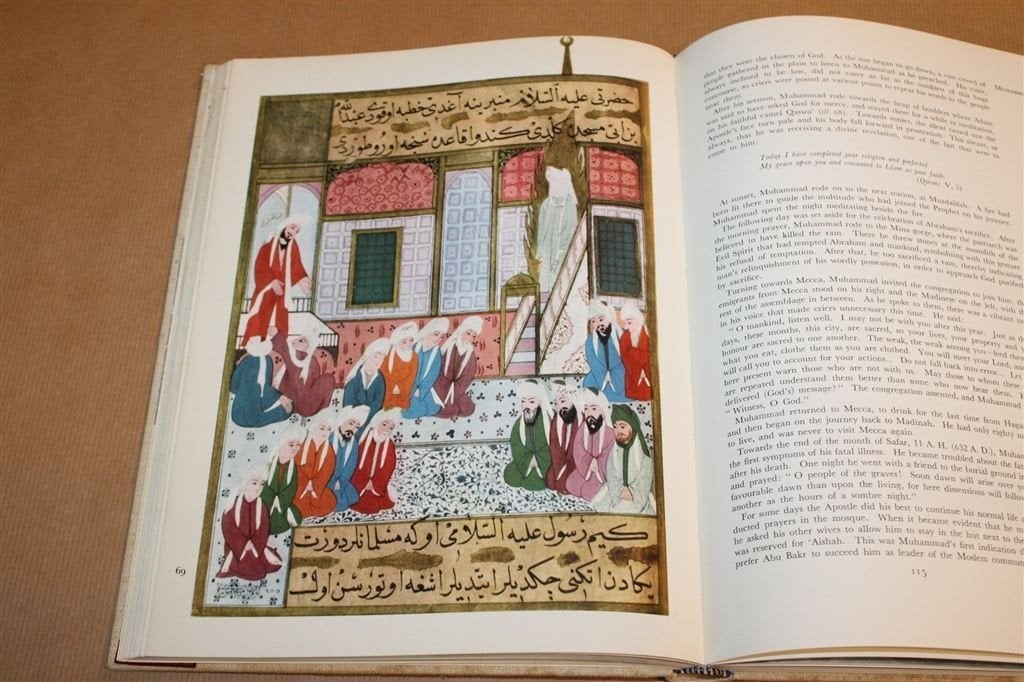 حضرتی علیه السلام منبرینه آغدی خطبه اوقودی عبدالله
بن ابی مسجده کلدی کندو قاعده سنجه
کیم رسول علیه السلامی اوکه مسلمانلر
اتکنی چکدیلر ایتدیلر اشغه اوتور
69
that they were the chosen of God. As the sun began to go down, a vast crowd of
people gathered in the plain to listen to Muhammad as he preached. His voice,
always inclined to be low, did not carry as far as the outskirts of this huge
concourse, so criers were posted at various points to repeat his words to the people
near them.
After his sermon, Muhammad rode towards the heap of boulders where Adam
was said to have asked God for mercy, and stayed there for a while in meditation,
on his faithful camel Qaswa' (ill. 68). Towards sunset, the silent crowd saw the
Apostle's face turn pale and his body fall forward in prostration. This meant, as
always, that he was receiving a divine revelation, one of the last that were to
come to him:
Today I have completed your religion and perfected
My grace upon you and consented to Islam as your faith.
(Quran: V, 3)
At sunset, Muhammad rode on to the next station, at Muzdalifah. A fire had
been lit there to guide the multitude who had joined the Prophet on his journey.
Muhammad spent the night meditating beside the fire.
The following day was set aside for the celebration of Abraham's sacrifice. After
the morning prayer, Muhammad rode to the Mina gorge, where the patriarch was
believed to have killed the ram. There he threw stones at the monolith of the
Evil Spirit that had tempted Abraham and mankind, symbolising with this gesture
his refusal of temptation. After that, he too sacrificed a ram, thereby indicating
man's relinquishment of his wordly possession, in order to approach God purified
by sacrifice.
Turning towards Mecca, Muhammad invited the congregation to join him: the
emigrants from Mecca stood on his right and the Madinese on the left, with the
rest of the assemblage in between. As he spoke to them, there was a vibrant
in his voice that made criers unnecessary this time. He said:
"O mankind, listen well. I may not be with you after this year. Just as
days, these months, this city, are sacred, so your lives, your property and
honour are sacred to one another. The weak, the weak among you—feed them
what you eat, clothe them as you are clothed. You will meet your Lord, and
will call you to account for your actions... Do not fall back into error... Let
here present warn those who are not with us. May those to whom these
are repeated understand them better than some who now hear them.
delivered (God's) message?" The congregation assented, and Muhammad
"Witness, O God."
Muhammad returned to Mecca, to drink for the last time from Hagar
and then began on the journey back to Madinah. He had only eighty
to live, and was never to visit Mecca again.
Towards the end of the month of Safar, 11 A. H. (632 A. D.),
the first symptoms of his fatal illness. He became troubled about the
after his death. One night he went with a friend to the burial ground
and prayed: "O people of the graves! Soon dawn will arise over
favourable dawn than upon the living, for here dissensions will follow
another as the hours of a sombre night."
For some days the Apostle did his best to continue his normal life
ducted prayers in the mosque. When it became evident that he
he asked his other wives to allow him to stay in the hut next to the
was reserved for 'Aishah. This was Muhammad's first indication
prefer Abu Bakr to succeed him as leader of the Moslem
115